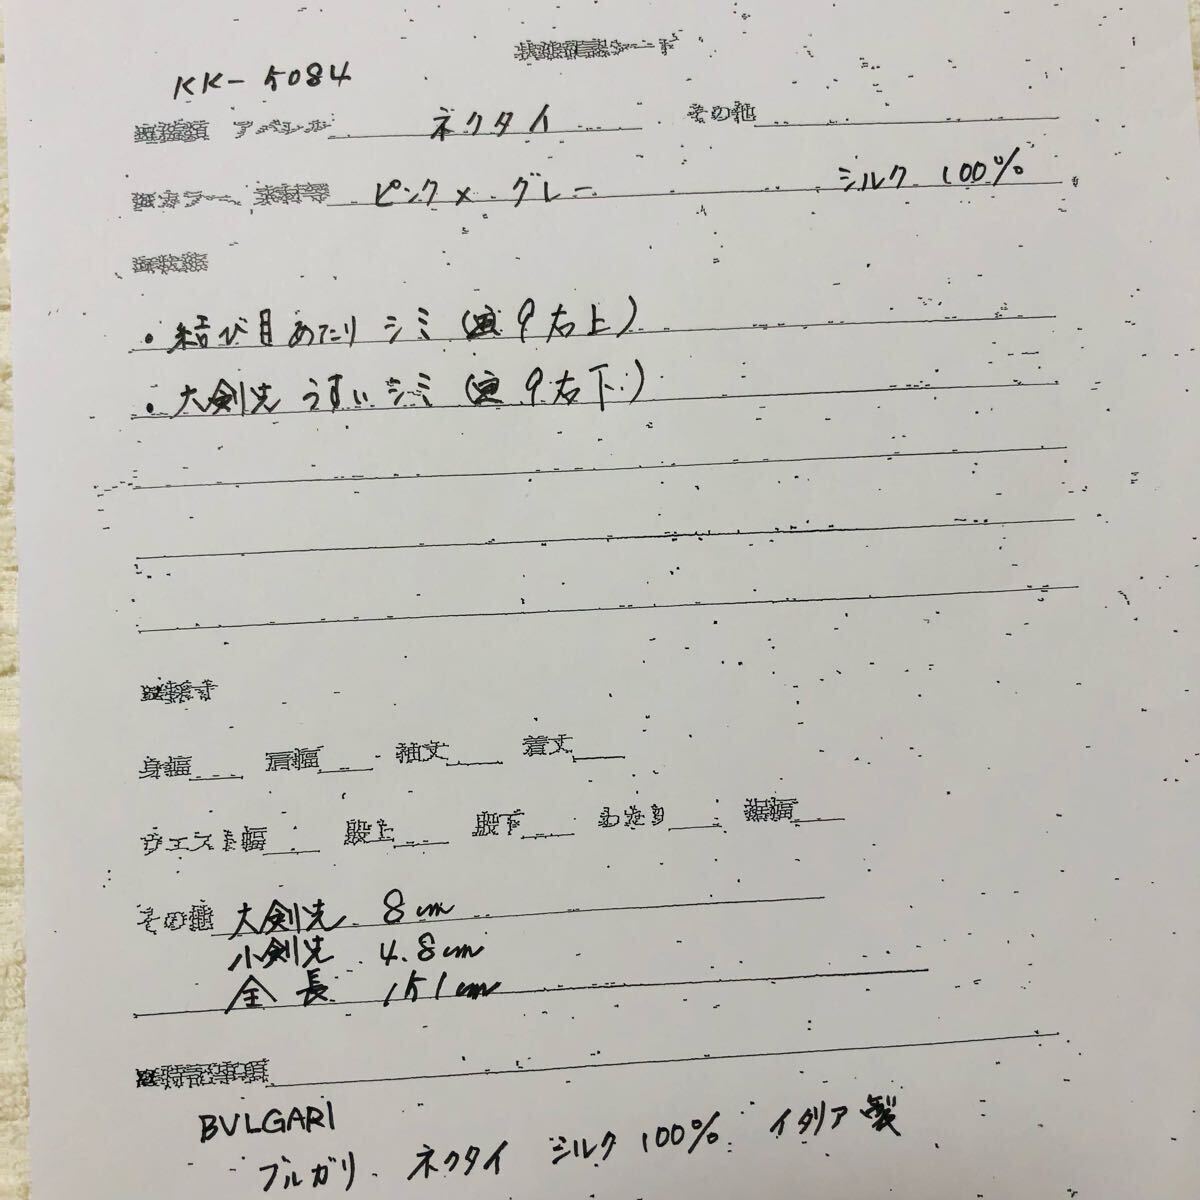 状態確認シート
KK-5084
アパレル ネクタイ その他
カラー、素材等 ピンク×グレー シルク 100%
※状態
・結び目あたり シミ (画9右上)
・大剣先 うすいシミ (画9右下)
※採寸
身幅 肩幅 袖丈 着丈
ウエスト幅 股上 股下 わたり 裾幅
その他 大剣先 8cm
小剣先 4.8cm
全長 151cm
※特記事項
BVLGARI
ブルガリ ネクタイ シルク 100% イタリア製